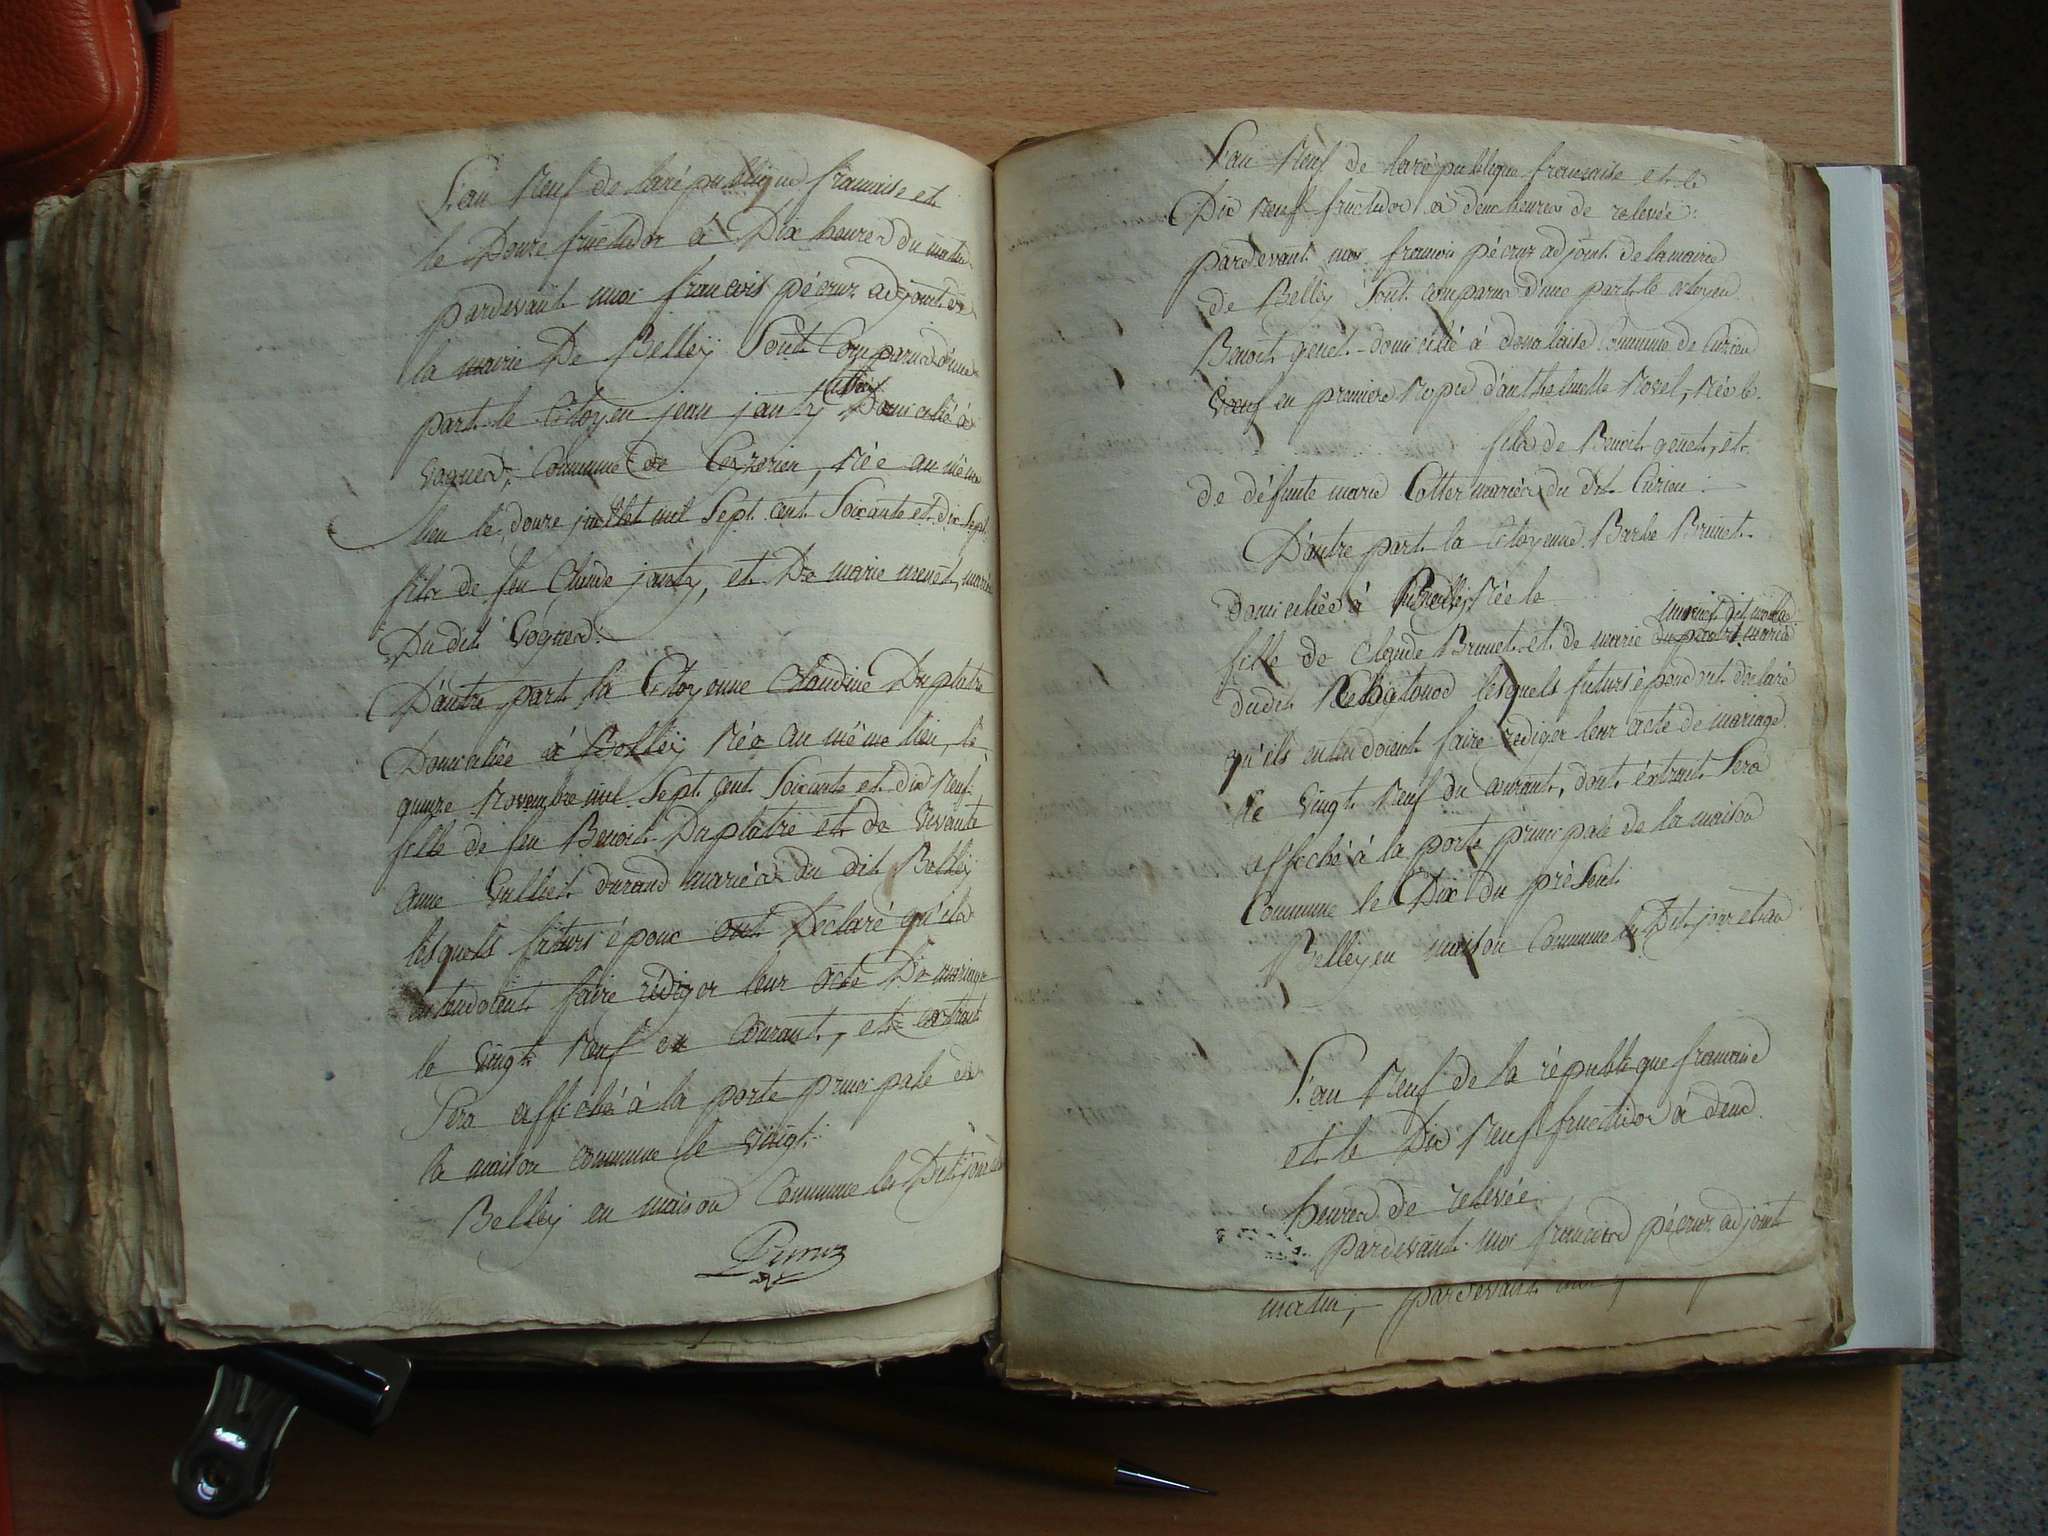 L'an Neuf de la république francaise et
le Douze fructidor à Dix heures du matin
pardevant moi francois pécruz adjoint de
la mairie De Belleÿ Sont Comparus d'une
part le Citoyen jean janty Domicilié à
Vognes, Commune de Ceyzerieu, Née au même
lieu le douze juillet mil Sept cent Soixante et dix Sept
fils de feu Claude janty, et De marie menet, mariés
Du dit Vognes.
D'autre part la Citoyenne Claudine Duplatre
Domiciliée à Belleÿ Née au même lieu, le
quinze Novembre mil Sept cent Soixante et dix Neuf
fille de feu Benoit Duplatre et de vivante
anne Vulliet durand mariés du dit Belleÿ
lesquels futurs époux ont Déclaré qu'ils
entendoient faire rédiger leur acte De mariage
le vingt Neuf du Courant, et extrait
Sera affiché à la porte principale de
la maison commune le vingt
Belleÿ en maison Commune les Dit jour
Pécruz
L'an Neuf de la république francaise et le
Dix Neuf fructidor à deux heures de relevée
pardevant moi francois pécruz adjoint de la mairie
de Belleÿ Sont comparus d'une part le citoyen
Benoit genet domicilié à donalaise Commune de Cuzieu
Veuf en première Nopce d'anthelmette Rosel, Née le
fils de Benoit genet, et
de défunte marie Cottet mariés du dit Cuzieu
D'autre part la Citoyenne Barbe Brunet
domiciliée à Belleÿ Née le
dit
fille de Claude Brunet et de marie mariés
dudit lesquels futurs époux ont déclaré
qu'ils entendoient faire rediger leur acte de mariage
le vingt Neuf du courant, dont extrait Sera
affiché à la porte principale de la maison
Commune le Dix du présent
Belley en maison Commune les Dit jour et an
L'an Neuf de la république francaise
et le Dix Neuf fructidor à deux
heures de relevée
pardevant moi francois pécruz adjoint
matin, pardevant moi